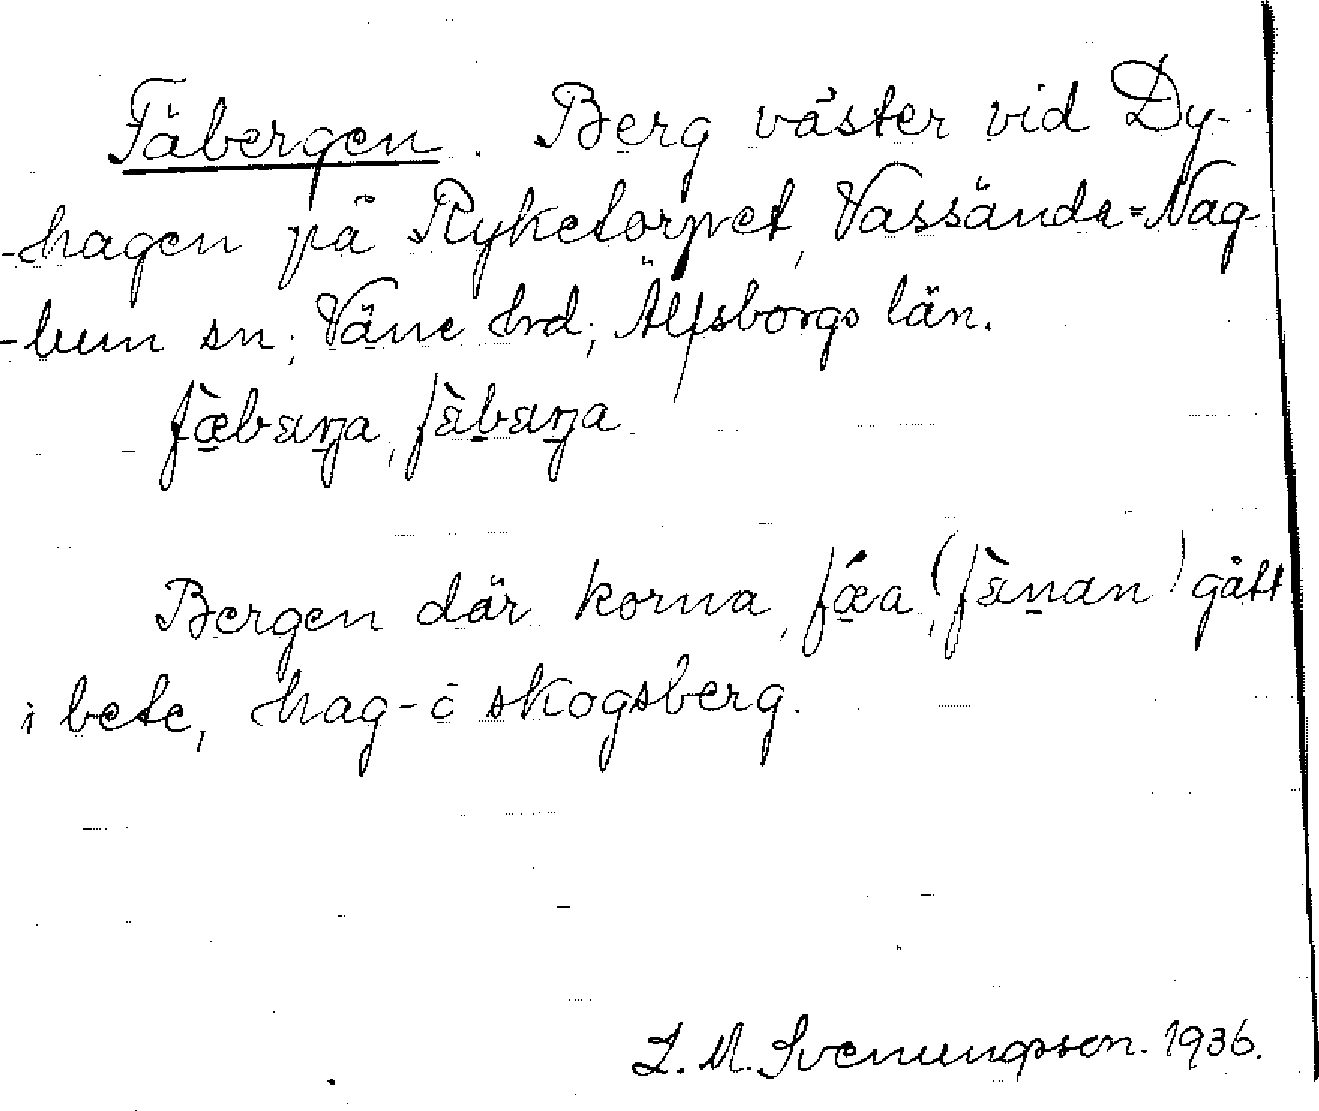 Fäbergen. Berg väster vid Dy-
-hagen på Ryketorpet, Vassända=Nag-
-lum sn; Väne hrd; Älfsborgs län.
fæ̀bæŋa, fàbæŋa
Bergen där korna, fǽa, (fæ̀nan) gått
i bete, hag-ō skogsberg.
L. M. Svenungsson. 1936.